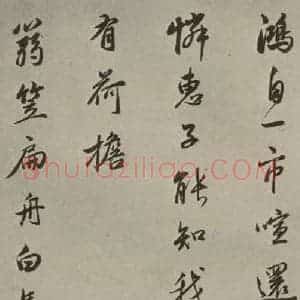 鴻自一市喧還
憐惠子能知我
有荷擔
翁笠扁舟白
shufaziliao.COM